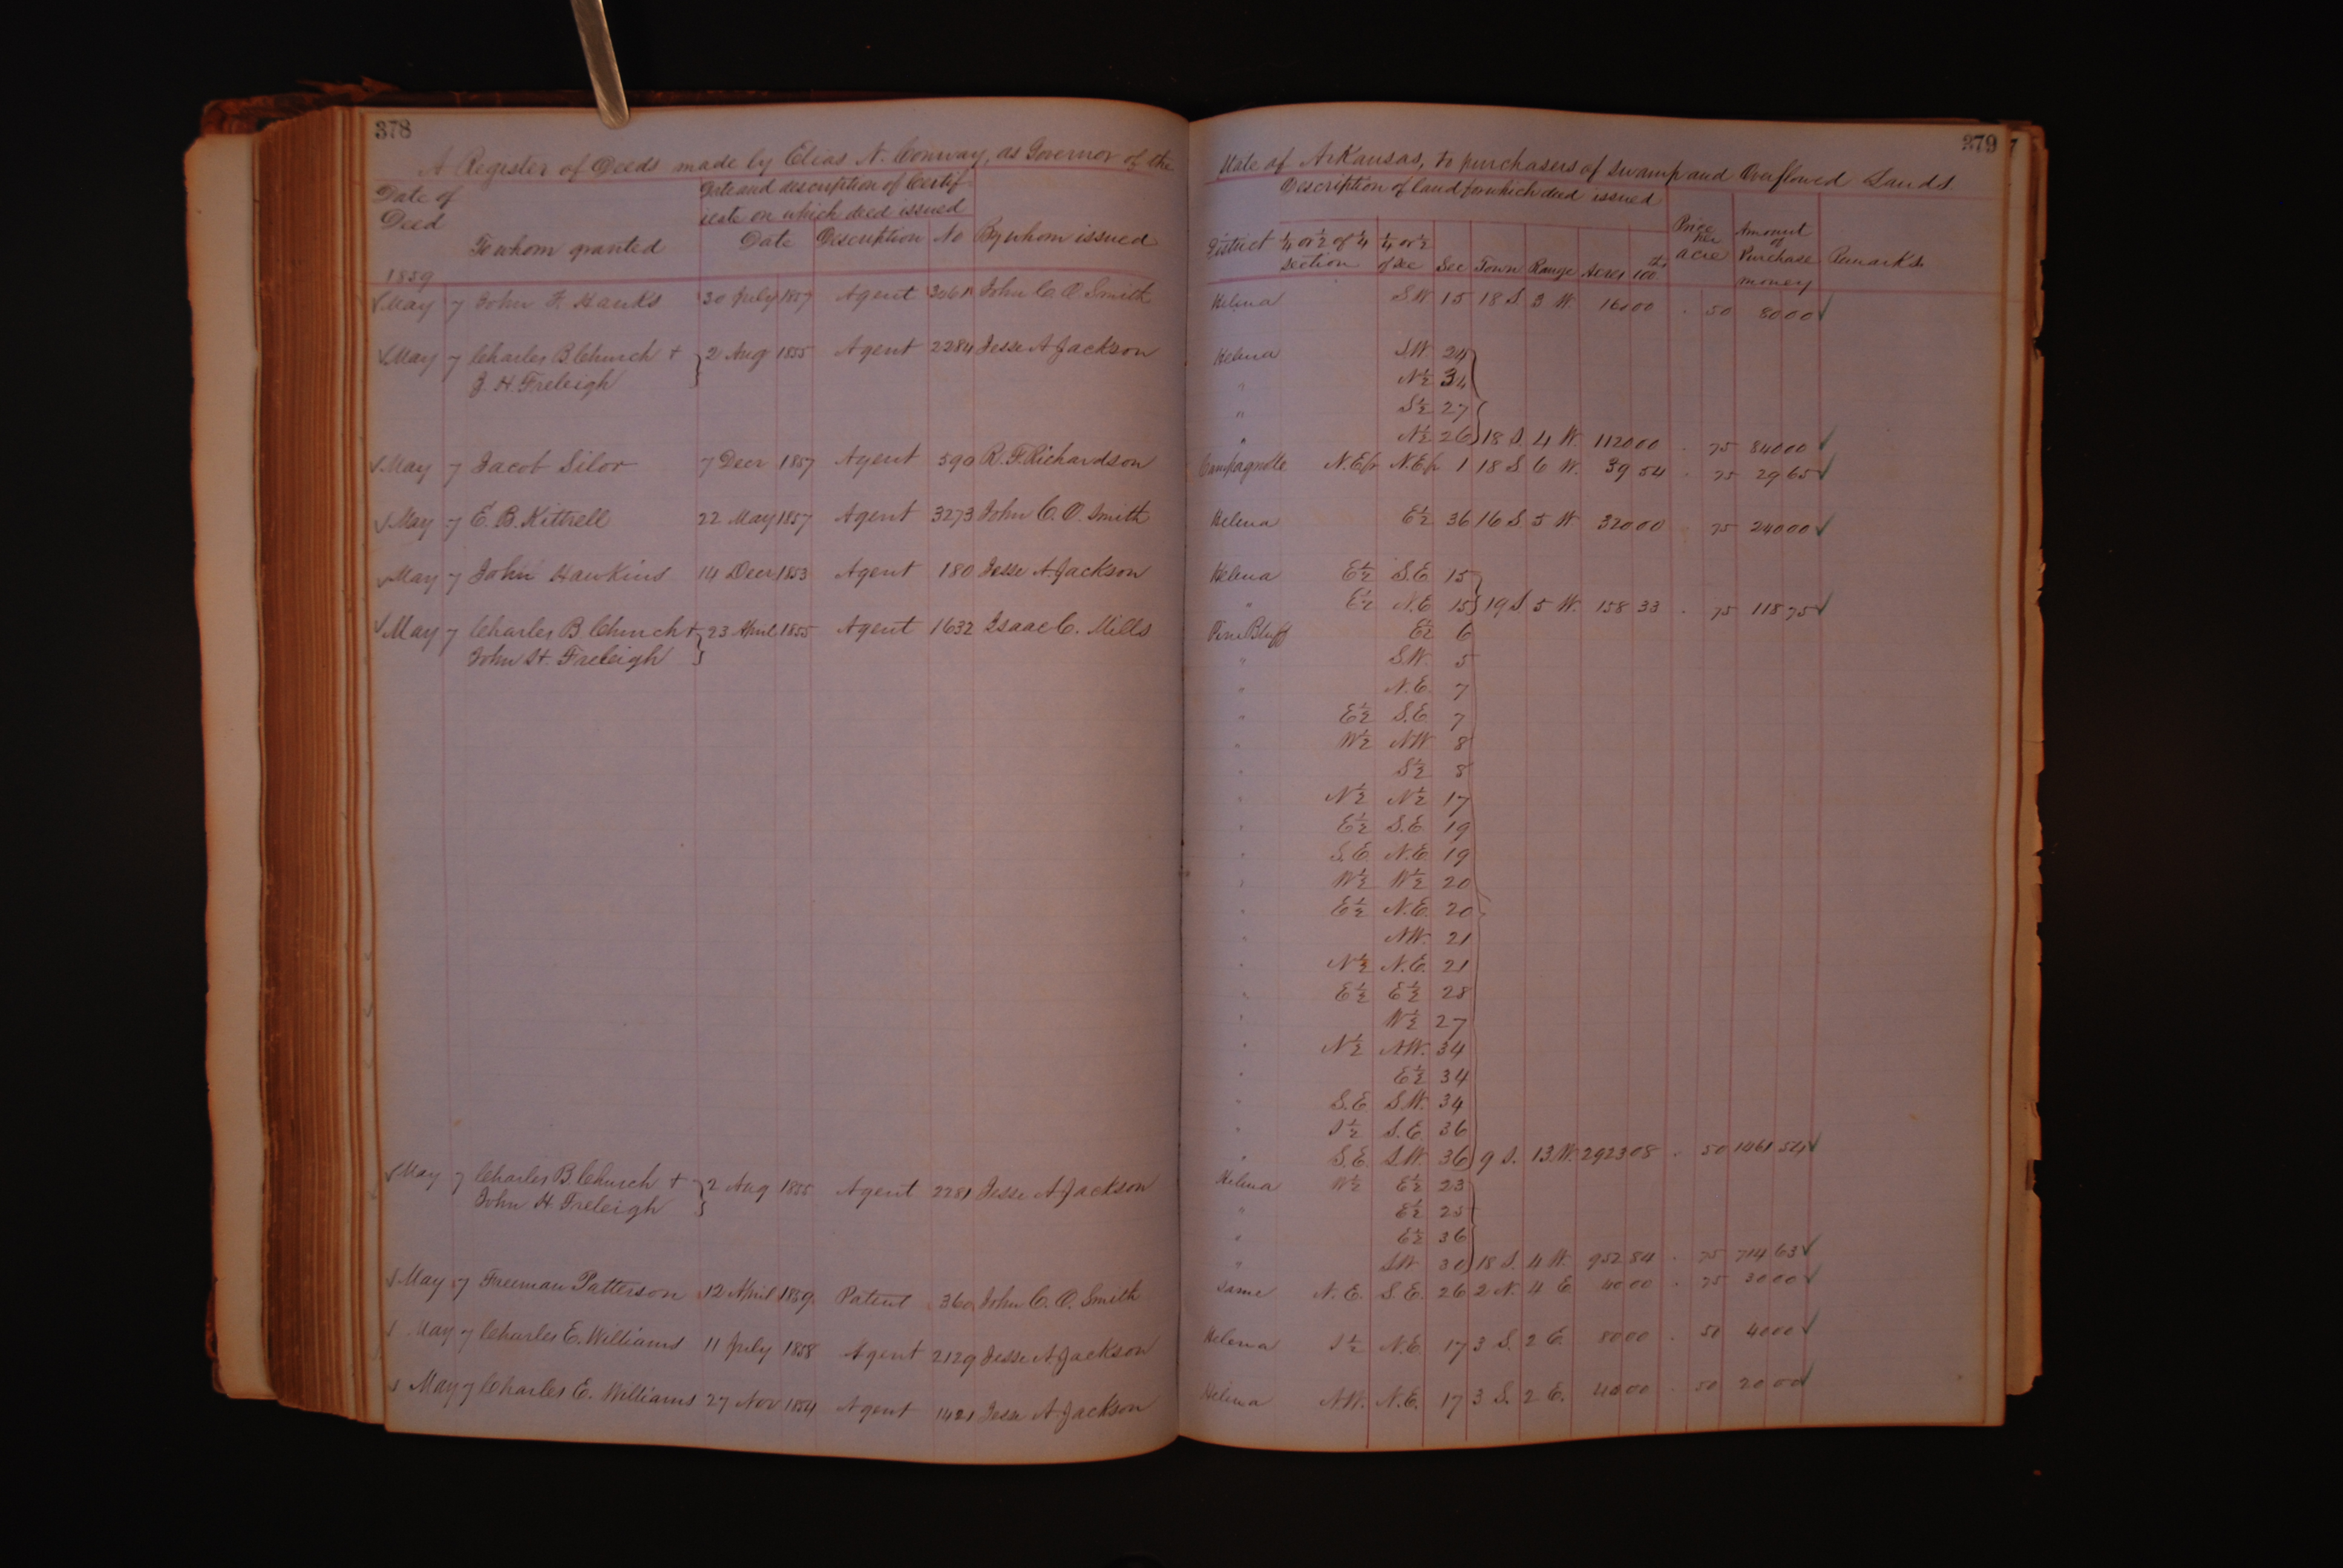 378
A Register of Deeds made by Elias N. Conway, as Governor of the
Date of Deed
To whom granted
Date and description of Certif-
icate on which deed issued
Date Description No By whom issued
1859
May 7 John F. Hanks 30 July 1857 Agent 3061 John C. O. Smith
May 7 Charles B. Church + 2 Aug 1855 Agent 2284 Jesse A Jackson
J. H. Freleigh
May 7 Jacob Silor 7 Decr 1857 Agent 590 R. F. Richardson
May 7 E. B. Kittrell 22 May 1857 Agent 3273 John C. O. Smith
May 7 John Hawkins 14 Decr 1853 Agent 180 Jesse A. Jackson
May 7 Charles B. Church + 23 April 1855 Agent 1632 Isaac C. Mills
John H. Freleigh
May 7 Charles B. Church + 2 Aug 1855 Agent 2281 Jesse A Jackson
John H. Freleigh
May 7 Freeman Patterson 12 April 1859 Patent 360 John C. O. Smith
May 7 Charles E. Williams 11 July 1858 Agent 2129 Jesse A Jackson
May 7 Charles E. Williams 27 Nov 1854 Agent 1421 Jesse A Jackson
379
State of Arkansas, to purchasers of swamp and Overflowed Lands.
Description of land for which deed issued
District 1/4 or 1/2 of 1/4 section 1/4 or 1/2 of Sec Sec Town Range Acres 100ths Price per acre Amount of Purchase money Remarks
Helena S.W. 15 18 S. 3 W. 160 00 . 50 80 00
Helena S.W. 24
" N 1/2 34
" S 1/2 27
" N 1/2 26 18 S. 4 W. 1120 00 . 75 840 00
Champagnolle N.E fr N.E fr 1 18 S 6 W. 39 54 . 75 29 65
Helena E 1/2 36 16 S 5 W 320 00 . 75 240 00
Helena E 1/2 S.E 15
" E 1/2 N.E 15 19 S 5 W. 158 33 . 75 118 75
Pine Bluff E 1/2 6
" S.W. 5
" N.E. 7
" E 1/2 S.E. 7
" W 1/2 NW 8
" S 1/2 8
" N 1/2 N 1/2 17
" E 1/2 S.E. 19
" S.E. N.E. 19
" W 1/2 W 1/2 20
" E 1/2 N.E. 20
" NW. 21
" N 1/2 N.E. 21
" E 1/2 E 1/2 28
" W 1/2 27
" N 1/2 NW. 34
" E 1/2 34
" S.E S.W. 34
" S 1/2 S.E. 36
" S.E. S.W. 36 9 S. 13 W. 2923 08 . 50 1461 54
Helena W 1/2 E 1/2 23
" E 1/2 25
" E 1/2 36
" SW 30 18 S. 4 W. 952 84 . 75 714 63
Same N.E. S.E. 26 2 N. 4 E 40 00 . 75 30 00
Helena S 1/2 N.E. 17 3 S. 2 E. 80 00 . 50 40 00
Helena N.W. N.E. 17 3 S. 2 E. 40 00 . 50 20 00